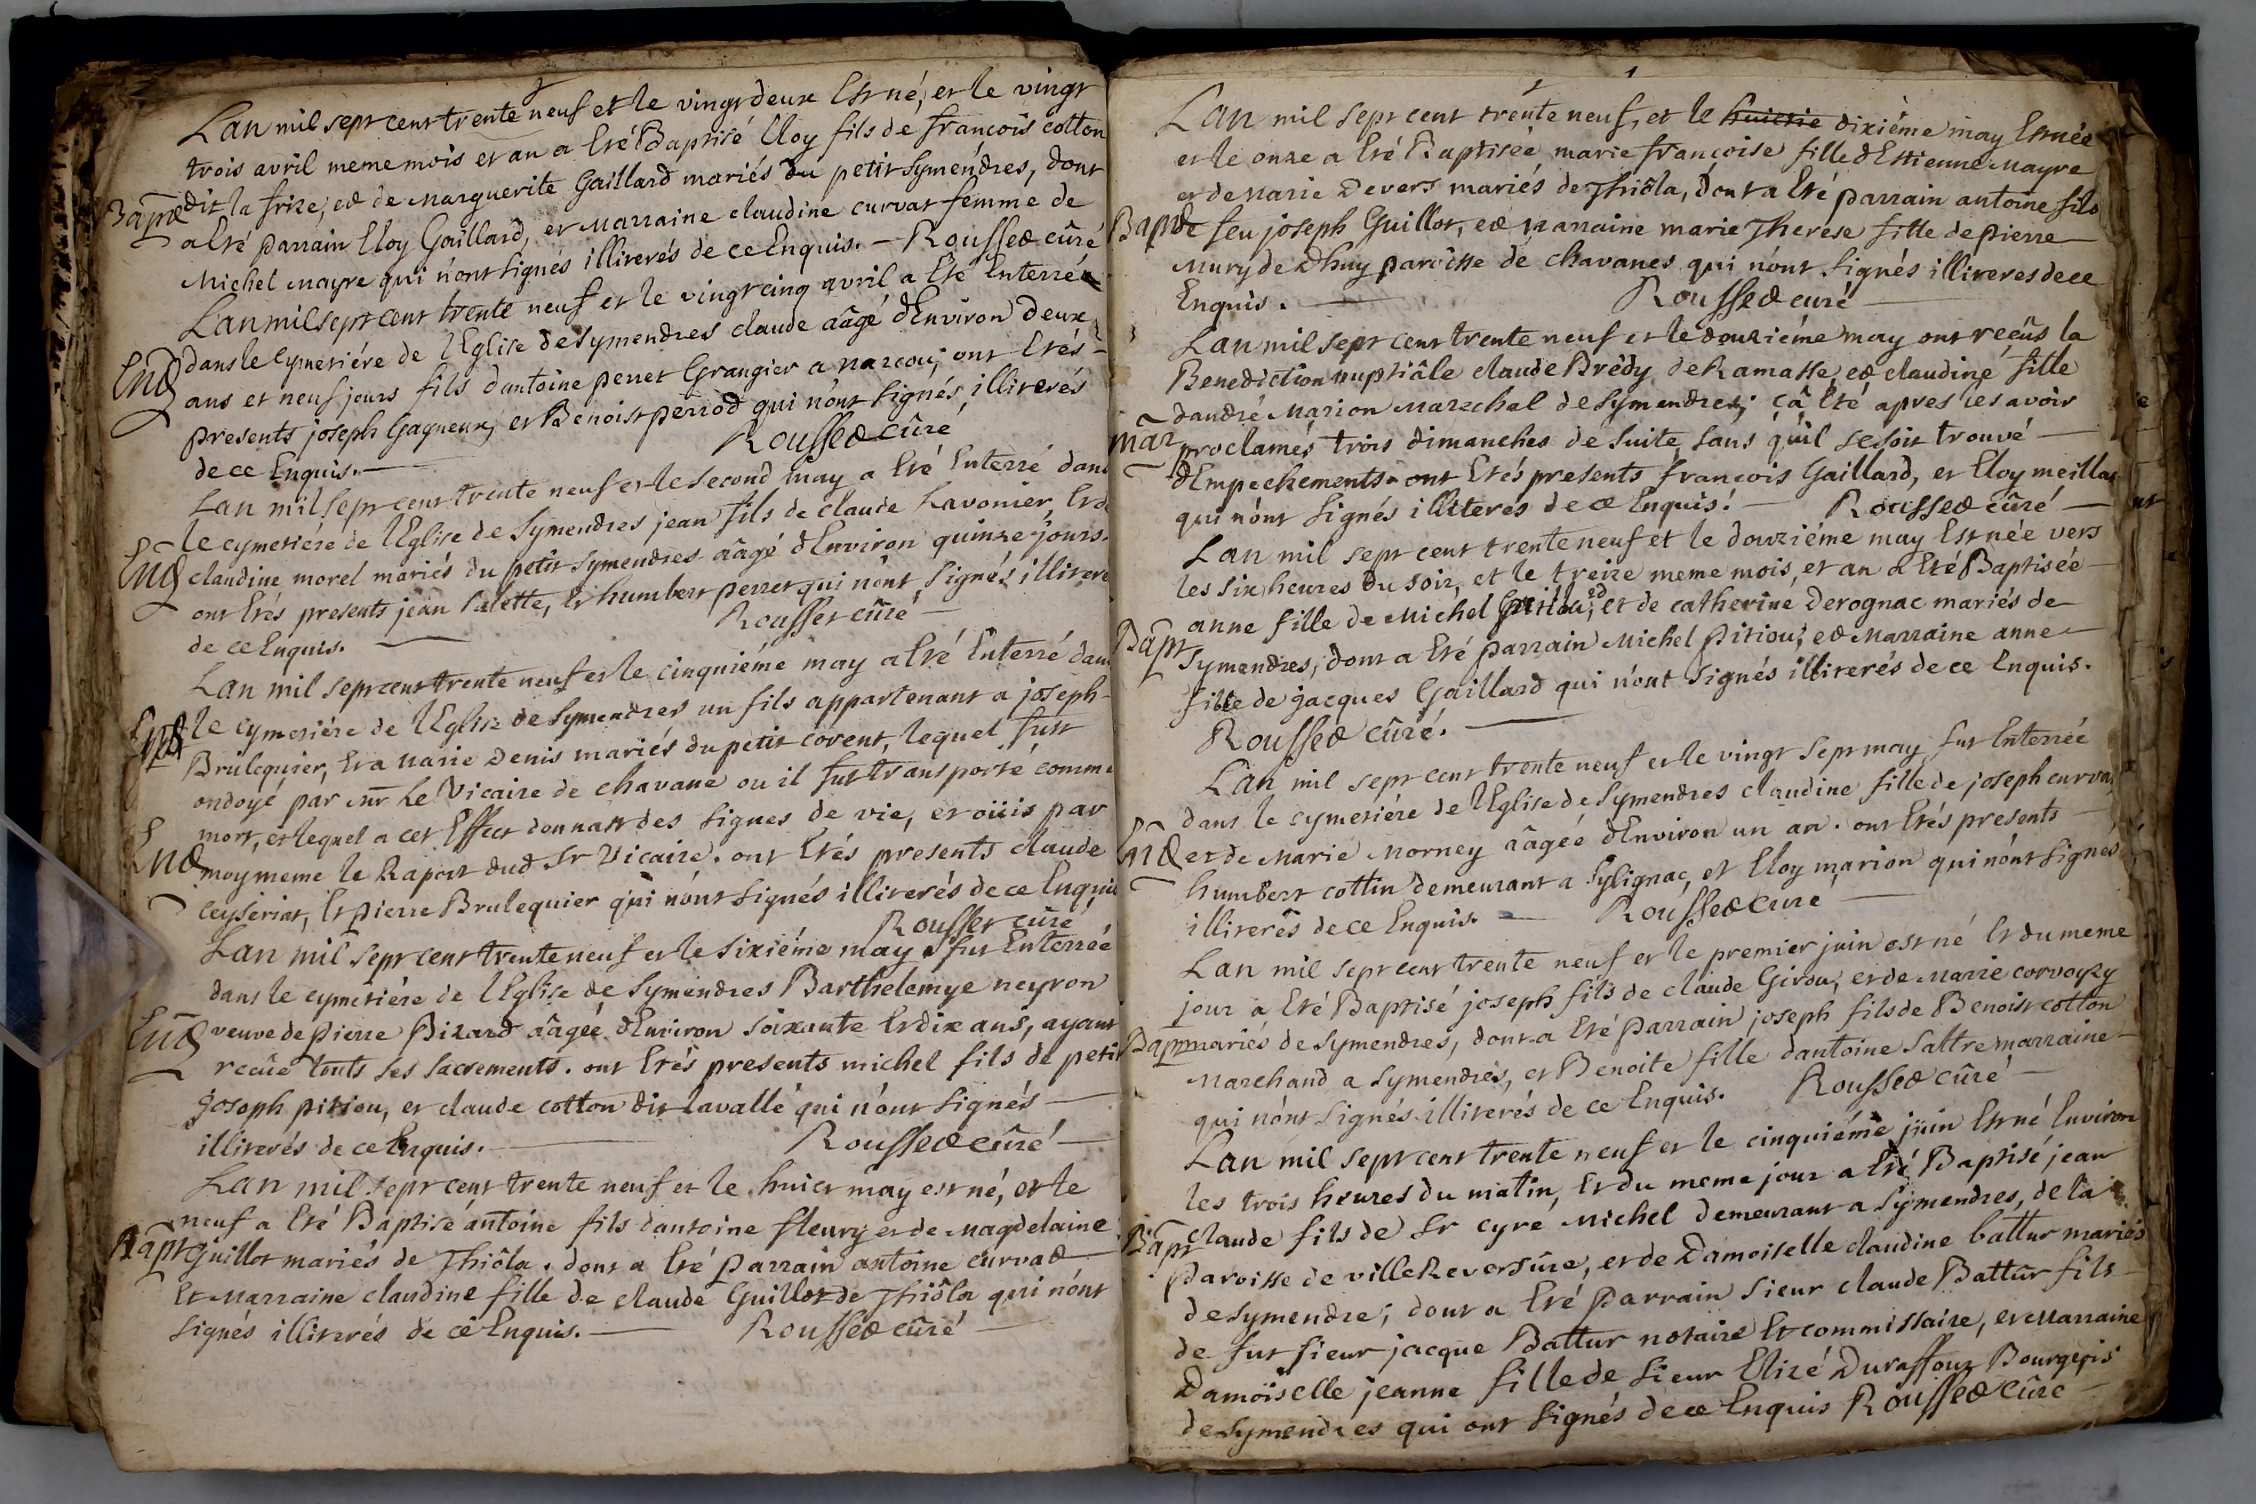 Lan mil sept cent trente neuf et le vingt deux Est né, et le vingt
trois avril meme mois et an a Eté Baptisé Eloy fils de francois cotton
Bapt dit la frize, et de Marguerite Gaillard mariés du petit Symendres, dont
a Eté parrain Eloy Gaillard, et Marraine claudine curvat femme de
Michel Mayre qui n'ont signés illiterés de ce Enquis. — Rousset cûré
Lan mil sept cent trente neuf et le vingt cinq avril a Eté Enterré
Ent dans le Cymetiére de l'Eglise de Symendres claude aâgé d'Environ deux
ans et neuf jours fils d'antoine perret Grangier a Marcou; ont Etés
presents joseph Gagneux, et Benoist perrod qui n'ont signés illiterés
de ce Enquis. — Rousset cûré
Lan mil sept cent trente neuf et le second may a Eté Enterré dans
le cymetiére de l'Eglise de Symendres jean fils de claude Ravonier, Et de
Ent claudine morel mariés du petit Symendres aâgé d'Environ quinze jours.
ont Etés presents jean Salette, Et humbert perret qui n'ont signés illiteré
de ce Enquis. — Rousset cûré
Lan mil sept cent trente neuf et le cinquiéme may a Eté Enterré dans
Ent le cymetiére de l'Eglise de Symendres un fils appartenant a joseph
Brulequier, Et a Marie Denis mariés du petit corent, lequel fust
ondoyé par Mr Le Vicaire de chavane ou il fust transporté comme
mort, et lequel a cet Effect donnast des signes de vie, et oüis par
Ent moy meme le Raport dud Sr Vicaire. ont Etés presents claude
ceyseriat, Et pierre Brulequier qui n'ont signés illiterés de ce Enquis
Rousset cûré
Lan mil sept cent trente neuf et le sixiéme may fut Enterrée
dans le cymetiére de l'Eglise de Symendres Barthelemye neyron
Ent veuve de pierre Pizard aâgée d'Environ soixante Et dix ans, ayant
recûe touts ses sacrements. ont Etés presents michel fils de petit
joseph pitiou, et claude cotton dit lavallé qui n'ont signés
illiterés de ce Enquis. — Rousset cûré
Lan mil sept cent trente neuf et le huict may est né, et le
neuf a Eté Baptisé antoine fils d'antoine fleury et de Magdelaine
Bapt Guillot mariés de Thiôla. dont a Eté parrain antoine curvat
Et Marraine claudine fille de claude Guillot de Thiôla qui n'ont
signés illiterés de ce Enquis. — Rousset cûré
Lan mil sept cent trente neuf, et le dixiéme may Est née
et le onze a Eté Baptisée marie francoise fille d'Estienne Mayre
et de Marie Devers mariés de Thiôla, dont a Eté parrain antoine fils
Bapt de feu joseph Guillot, et Marraine marie Therese fille de pierre
Mury de Dhuy paroisse de chavanes qui n'ont signés illiteres de ce
Enquis. — Rousset curé
Lan mil sept cent trente neuf et le douziéme may ont reçûs la
Benediction nuptiâle claude Brédy de Ramasse, et claudine fille
dandré Marion Marechal de Symendres; ça Eté apres les avoir
Mar proclamés trois dimanches de suite sans quil se soit trouvé
d'Empechements. ont Etés presents francois Gaillard, et Eloy meillas
qui n'ont signés illiterés de ce Enquis. — Rousset cûré
Lan mil sept cent trente neuf et le douziéme may Est née vers
les six heures du soir, et le treize meme mois, et an a Eté Baptisée
anne fille de Michel et de catherine Derognac mariés de
Bapt Symendres; dont a Eté parrain Michel pitiou; et Marraine anne
fille de jacques Gaillard qui n'ont signés illiterés de ce Enquis.
Rousset cûré.
Lan mil sept cent trente neuf et le vingt sept may fut Enterrée
dans le cymetiére de l'Eglise de Symendres claudine fille de joseph curva
Ent et de Marie Morney aâgée d'Environ un an. ont Etés presents
humbert cottin demeurant a Sylignac, et Eloy marion qui n'ont signés
illiterés de ce Enquis. — Rousset cûré
Lan mil sept cent trente neuf et le premier juin est né Et du meme
jour a Eté Baptisé joseph fils de claude Girou, et de Marie corvoyzy
Bapt mariés de Symendres, dont a Eté parrain joseph fils de Benoist cotton
Marchand a Symendres, et Benoite fille dantoine Sattre marraine
qui n'ont signés illiterés de ce Enquis. Rousset cûré
Lan mil sept cent trente neuf et le cinquiéme juin Est né Environ
les trois heures du matin, Et du meme jour a Eté Baptisé jean
Bapt claude fils de Sr cyre Michel demeurant a Symendres, de la
paroisse de villeReversûre, et de Damoiselle claudine battur mariés
de Symendre; dont a Eté parrain Sieur claude Battur fils
de fut sieur jacque Battur notaire Et commissaire, et Marraine
Damoïselle jeanne fille de Sieur Elizé Duraffour Bourgeois
de Symendres qui ont signés de ce Enquis Rousset cûré